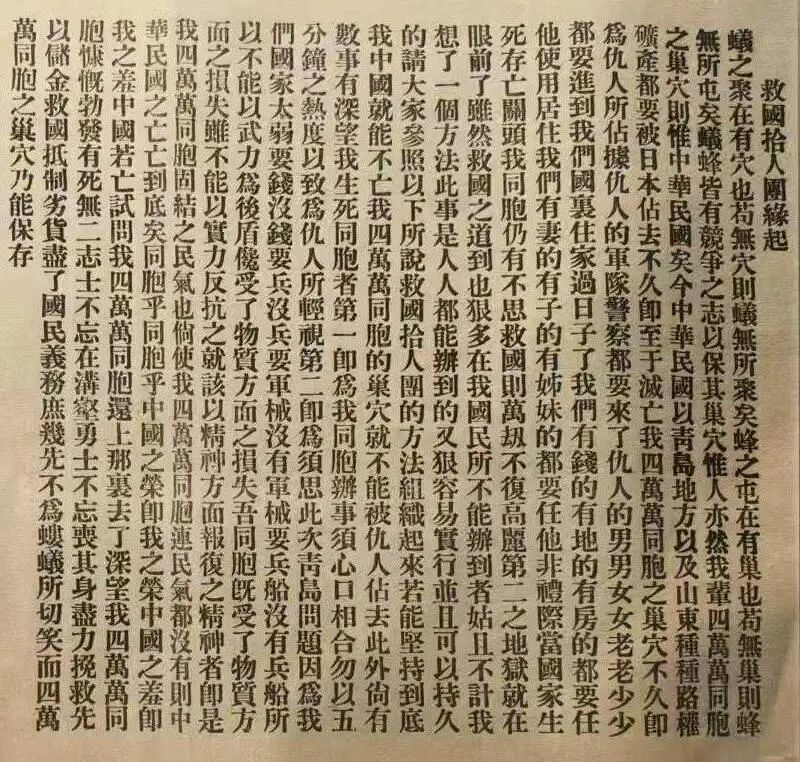 救國拾人團緣起
蟻之聚在有穴也苟無穴則蟻無所聚矣蜂之屯在有巢也苟無巢則蜂
無所屯矣蟻蜂皆有競爭之志以保其巢穴惟人亦然我輩四萬萬同胞
之巢穴則惟中華民國矣今中華民國以靑島地方以及山東種種路權
礦產都要被日本佔去不久卽至于滅亡我四萬萬同胞之巢穴不久卽
爲仇人所佔據仇人的軍隊警察都要來了仇人的男男女女老老少少
都要進到我們國裏住家過日子了我們有錢的有地的有房的都要任
他使用居住我們有妻的有子的有姊妹的都要任他非禮際當國家生
死存亡關頭我同胞仍有不思救國則萬刼不復高麗第二之地獄就在
眼前了雖然救國之道到也狠多在我國民所不能辦到者姑且不計我
想了一個方法此事是人人都能辦到的又狠容易實行並且可以持久
的請大家參照以下所說救國拾人團的方法組織起來若能堅持到底
我中國就能不亡我四萬萬同胞的巢穴就不能被仇人佔去此外尙有
數事有深望我生死同胞者第一卽爲我同胞辦事須心口相合勿以五
分鐘之熱度以致爲仇人所輕視第二卽爲須思此次靑島問題因爲我
們國家太弱要錢沒錢要兵沒兵要軍械沒有軍械要兵船沒有兵船所
以不能以武力爲後盾儳受了物質方面之損失吾同胞旣受了物質方
面之損失雖不能以實力反抗之就該以精神方面報復之精神者卽是
我四萬萬同胞固結之民氣也倘使我四萬萬同胞連民氣都沒有則中
華民國之亡亡到底矣同胞乎同胞乎中國之榮卽我之榮中國之羞卽
我之羞中國若亡試問我四萬萬同胞還上那裏去了深望我四萬萬同
胞慷慨勃發有死無二志士不忘在溝壑勇士不忘喪其身盡力挽救先
以儲金救國抵制劣貨盡了國民義務庶幾先不爲螻蟻所切笑而四萬
萬同胞之巢穴乃能保存